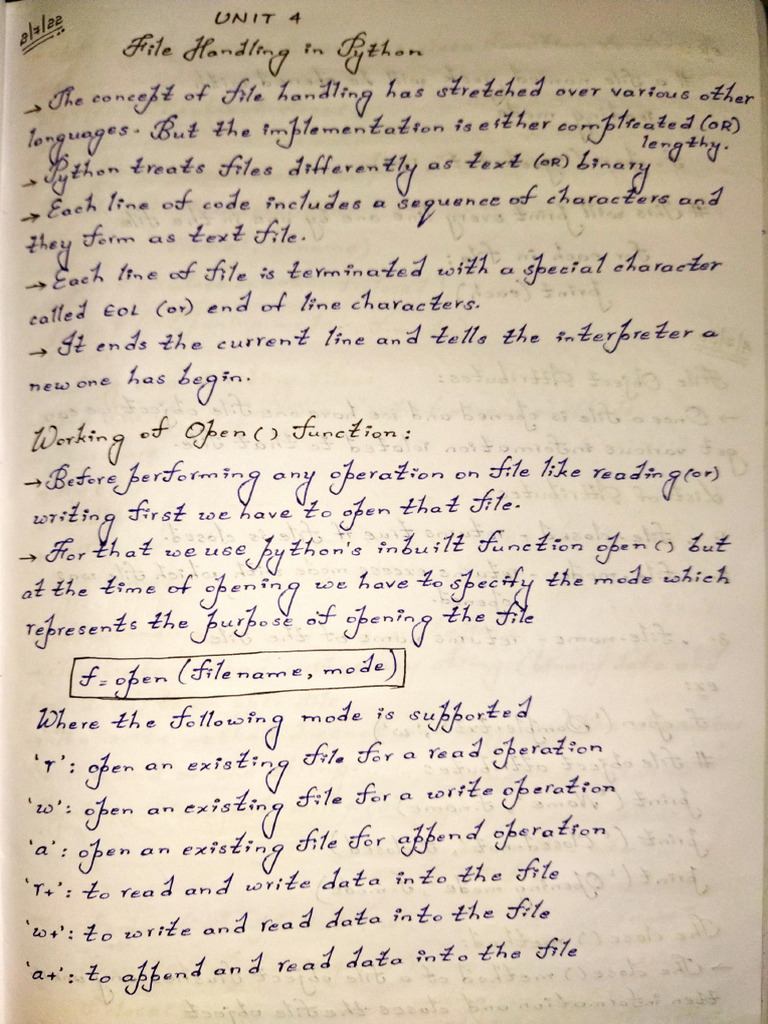 2/7/22
UNIT 4
File Handling in Python
→ The concept of file handling has stretched over various other
languages. But the implementation is either complicated (OR)
lengthy.
→ Python treats files differently as text (OR) binary
→ Each line of code includes a sequence of characters and
they form as text file.
→ Each line of file is terminated with a special character
called EOL (or) end of line characters.
→ It ends the current line and tells the interpreter a
new one has begin.
Working of Open() function:
→ Before performing any operation on file like reading (or)
writing first we have to open that file.
→ For that we use python's inbuilt function open () but
at the time of opening we have to specify the mode which
represents the purpose of opening the file
f = open (filename, mode)
Where the following mode is supported
'r': open an existing file for a read operation
'w': open an existing file for a write operation
'a': open an existing file for append operation
'r+': to read and write data into the file
'w+': to write and read data into the file
'a+': to append and read data into the file